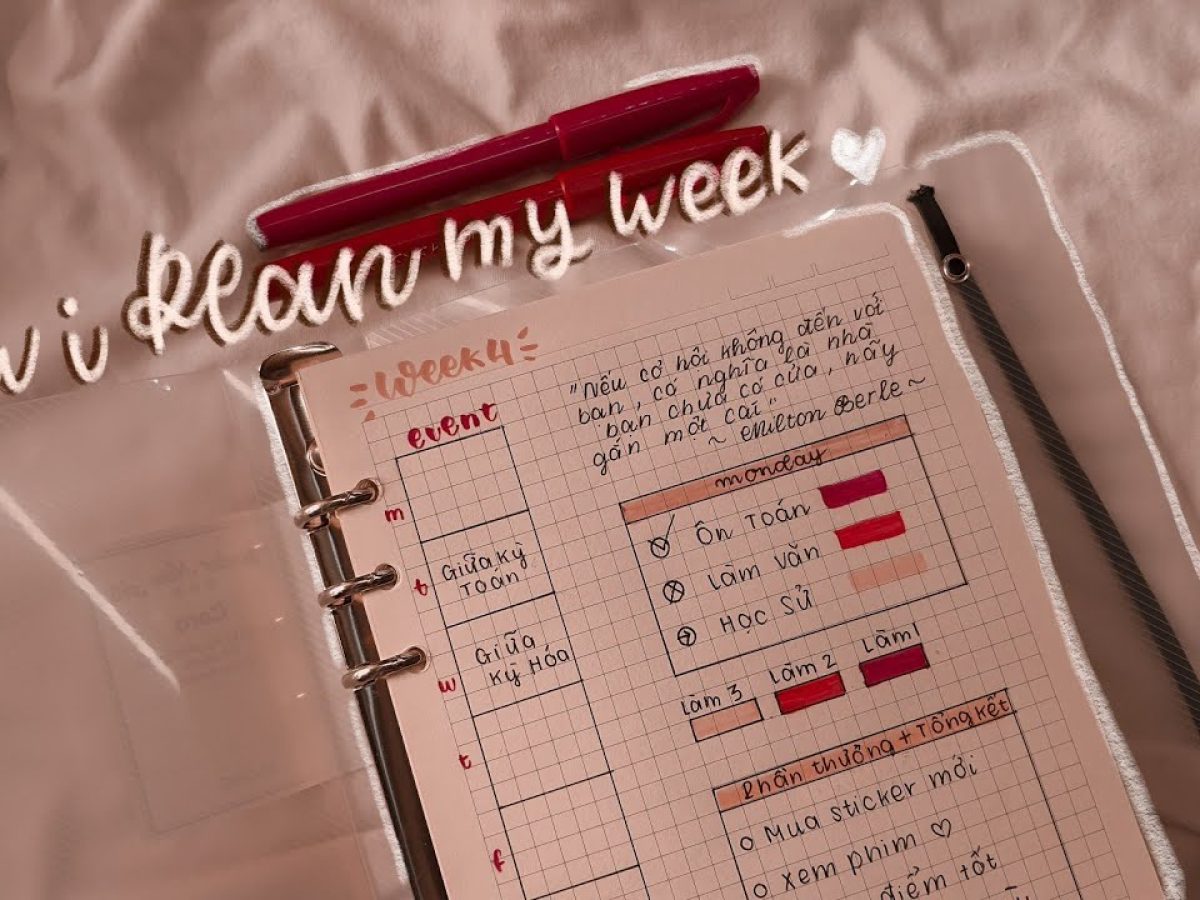 i plan my week
week 4
event
m
t
Giữa kỳ
Toán
w
Giữa
kỳ Hóa
t
f
"Nếu cơ hội không đến với
bạn, có nghĩa là nhà
bạn chưa có cửa, hãy
gắn một cái"
~ Milton Berle ~
monday
Ôn Toán
Làm Văn
Học Sử
Làm 3
Làm 2
Làm 1
Phần thưởng + Tổng kết
Mua sticker mới
xem phim ♡
điểm tốt